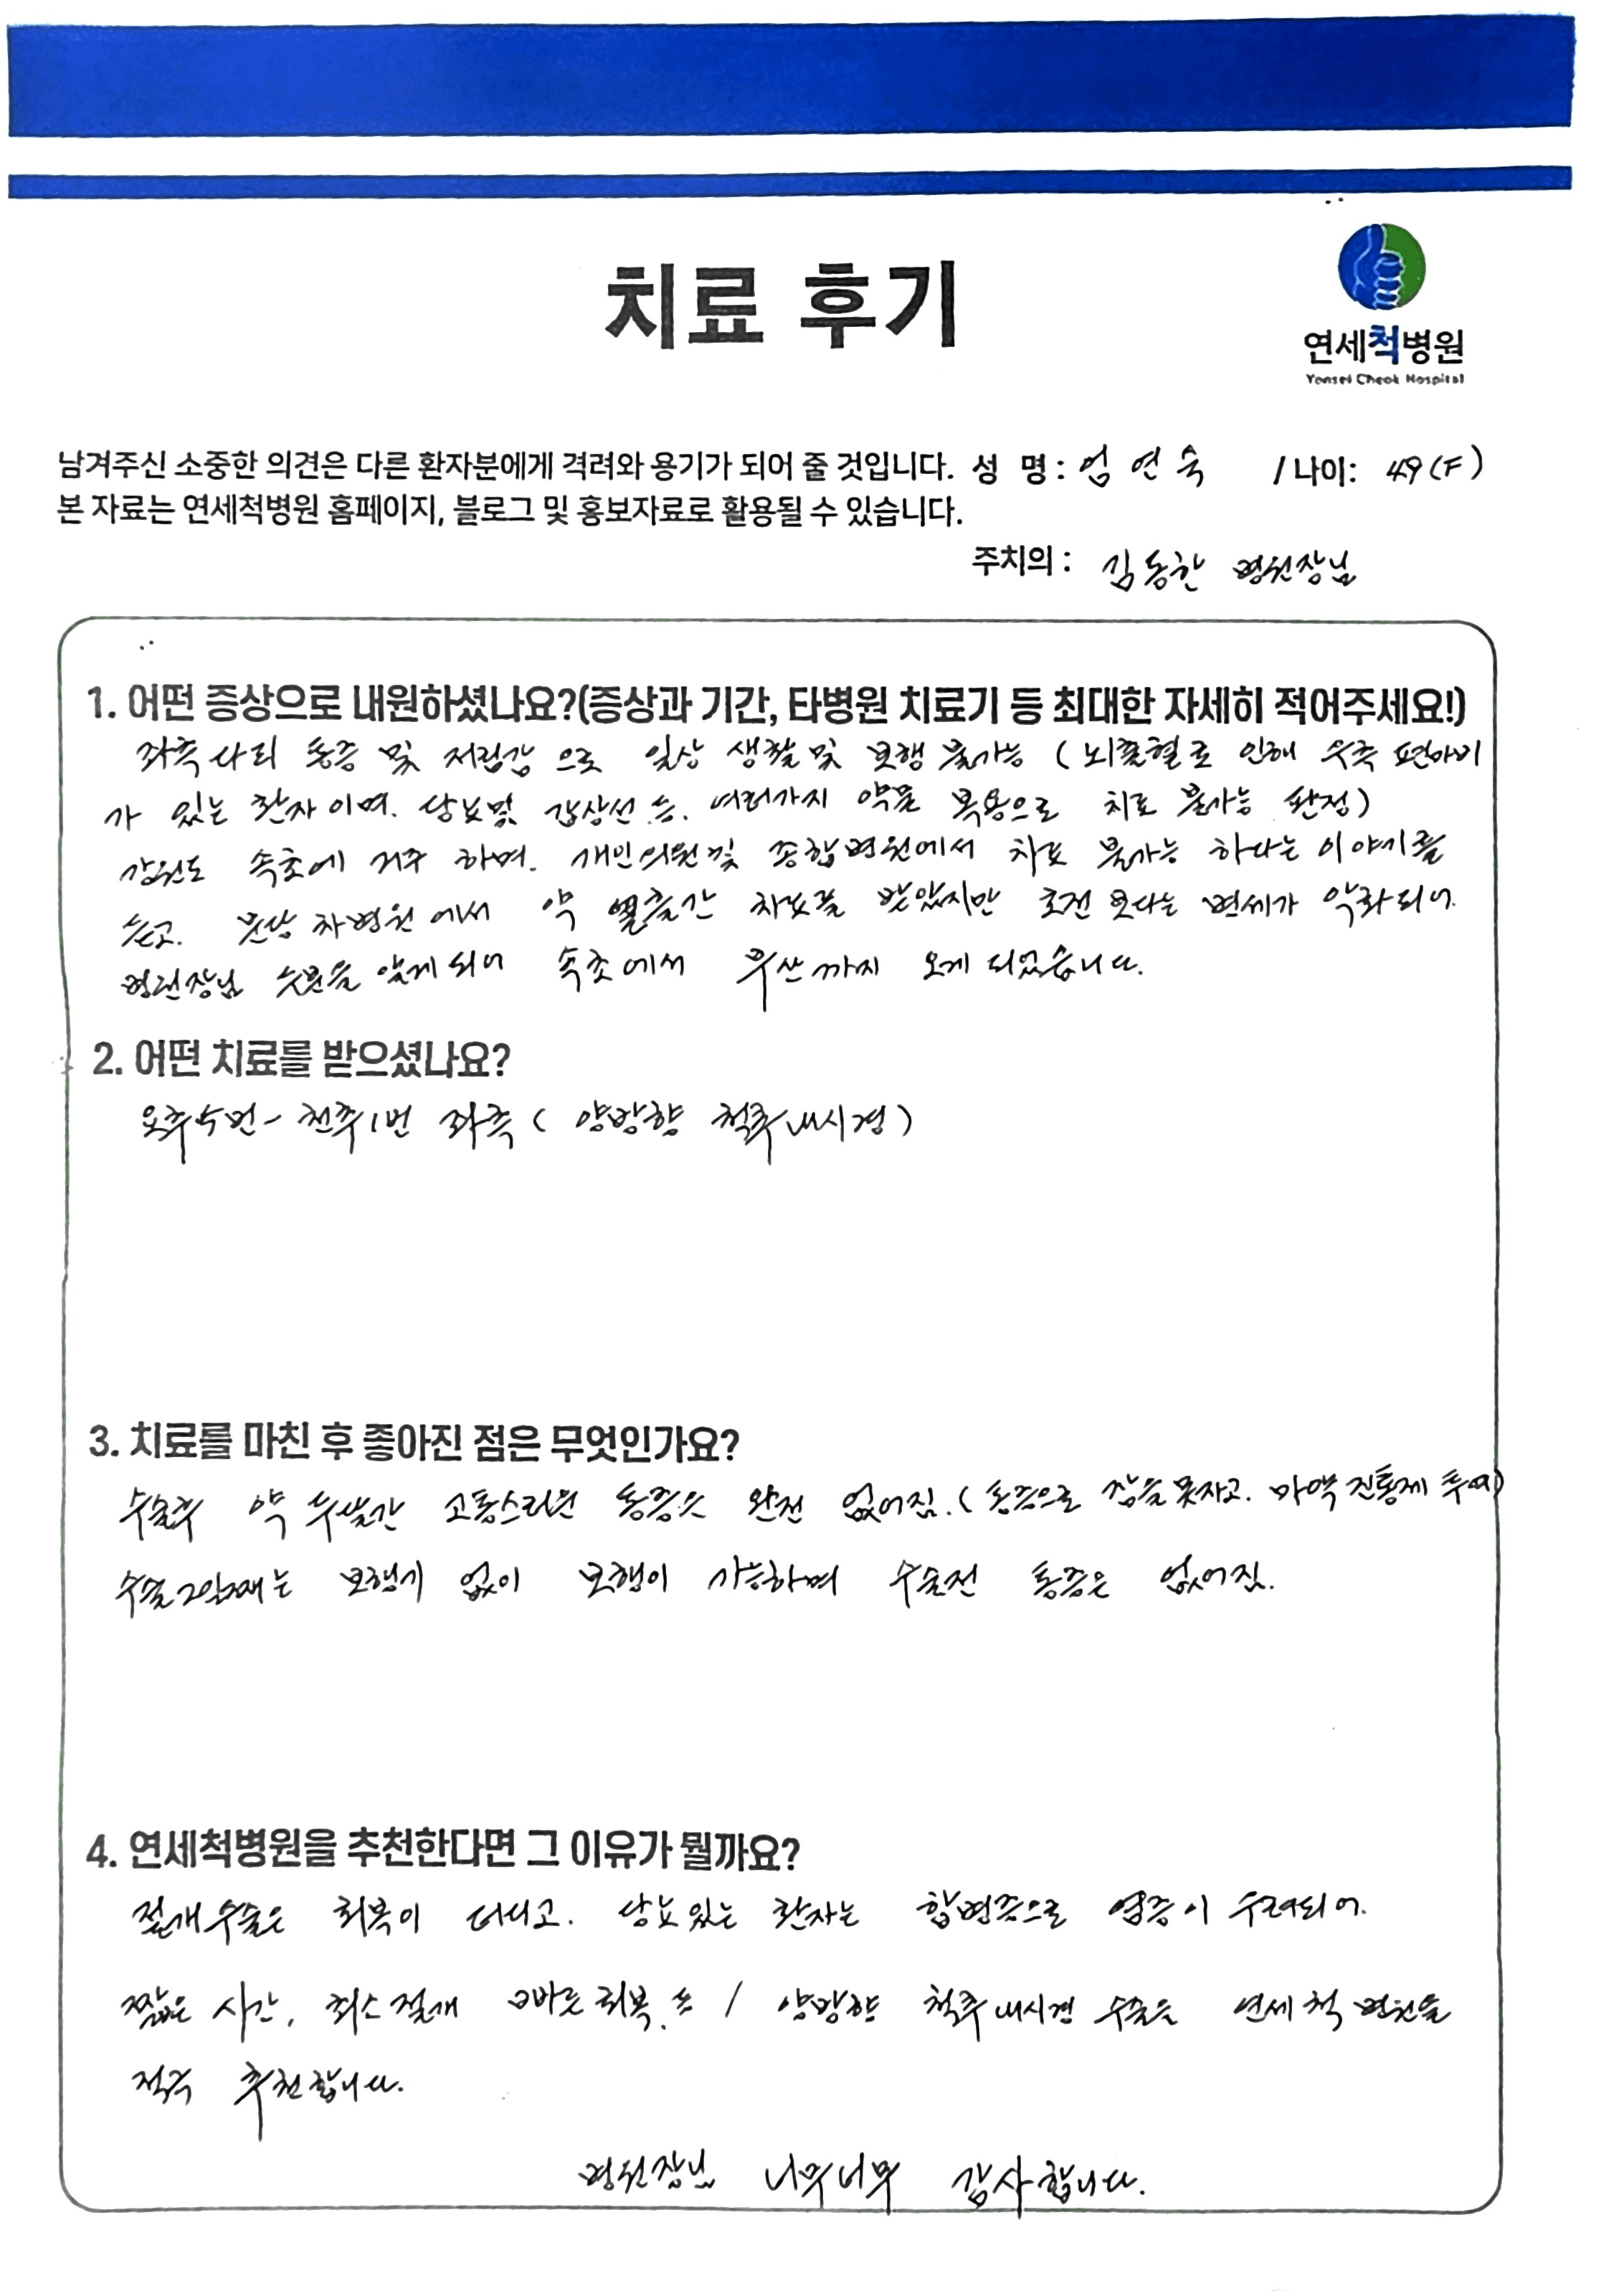 치료 후기
연세척병원
Yonsei Cheok Hospital
남겨주신 소중한 의견은 다른 환자분에게 격려와 용기가 되어 줄 것입니다. 성 명 : 엄연숙 / 나이: 49(F)
본 자료는 연세척병원 홈페이지, 블로그 및 홍보자료로 활용될 수 있습니다.
주치의 : 김동한 병원장님
1. 어떤 증상으로 내원하셨나요?(증상과 기간, 타병원 치료기 등 최대한 자세히 적어주세요!)
좌측다리 통증 및 저림감 으로 일상 생활및 보행 불가능 (뇌출혈로 인해 우측 편마비
가 있는 환자이며. 당뇨및 갑상선 등. 여러가지 약물 복용으로 치료 불가능 판정)
강원도 속초에 거주 하며. 개인의원및 종합병원에서 치료 불가능 하다는 이야기를
듣고. 분당 차병원에서 약 열흘간 치료를 받았지만 호전 보다는 병세가 악화되어.
병원장님 소문을 알게되어 속초에서 부산까지 오게 되었습니다.
2. 어떤 치료를 받으셨나요?
요추5번- 천추1번 좌측 ( 양방향 척추내시경 )
3. 치료를 마친 후 좋아진 점은 무엇인가요?
수술후 약 두달간 고통스러운 통증은 완전 없어짐. (통증으로 잠을못자고. 마약 진통제 투여)
수술2일째는 보행기 없이 보행이 가능하며 수술전 통증은 없어짐.
4. 연세척병원을 추천한다면 그 이유가 뭘까요?
절개수술은 회복이 더디고. 당뇨있는 환자는 합병증으로 염증이 우려되어.
짧은 시간, 최소절개 빠른회복. 등 / 양방향 척추내시경 수술은 연세척 병원을
적극 추천합니다.
병원장님 너무너무 감사합니다.